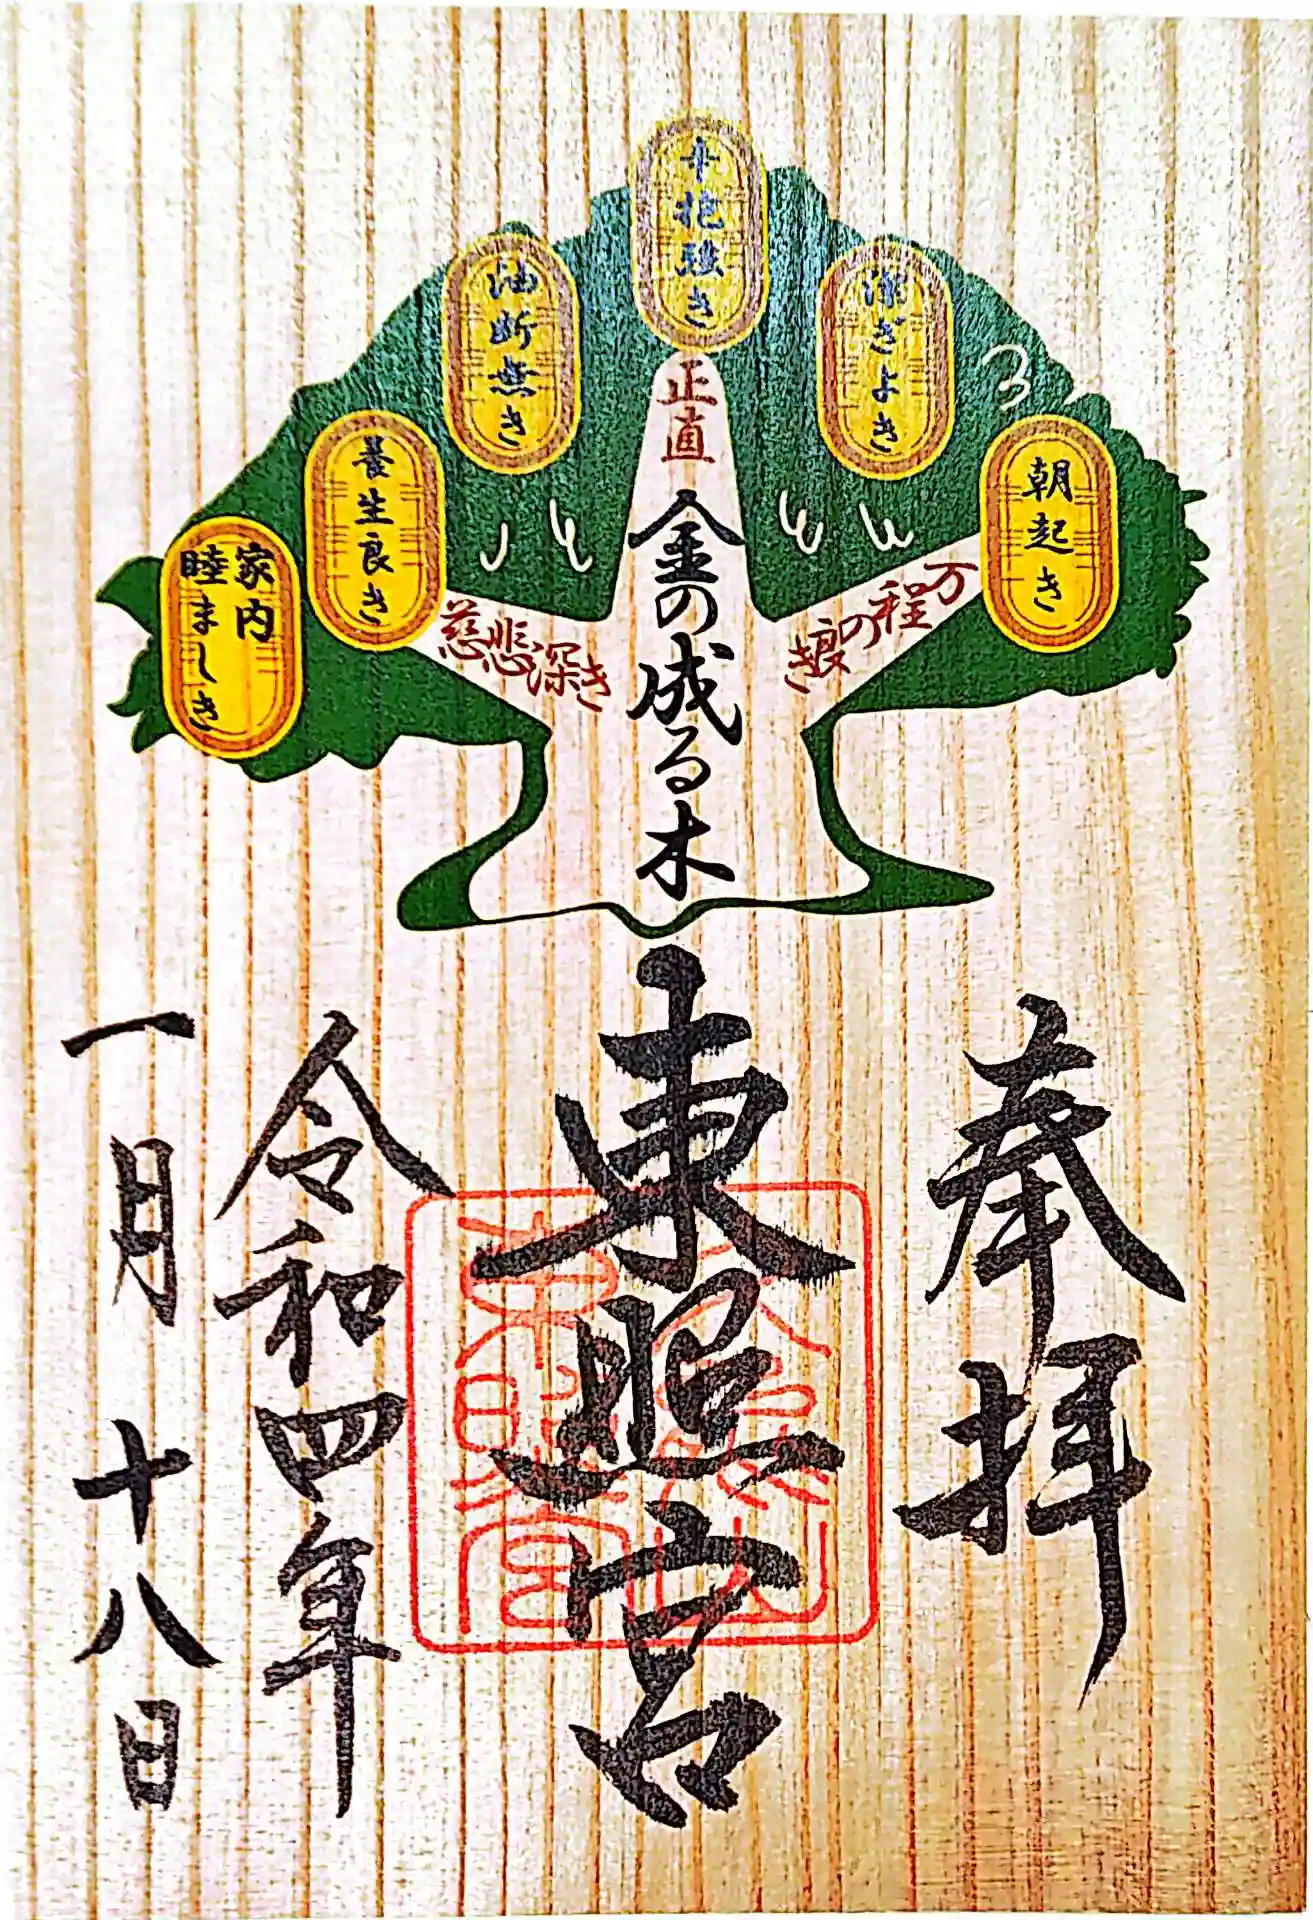 朝起き
潔ぎよき
辛抱強き
油断無き
養生良き
家内
睦ましき
万程の良き
正直
慈悲深き
金の成る木
奉拝
東照宮
令和四年
一月十八日